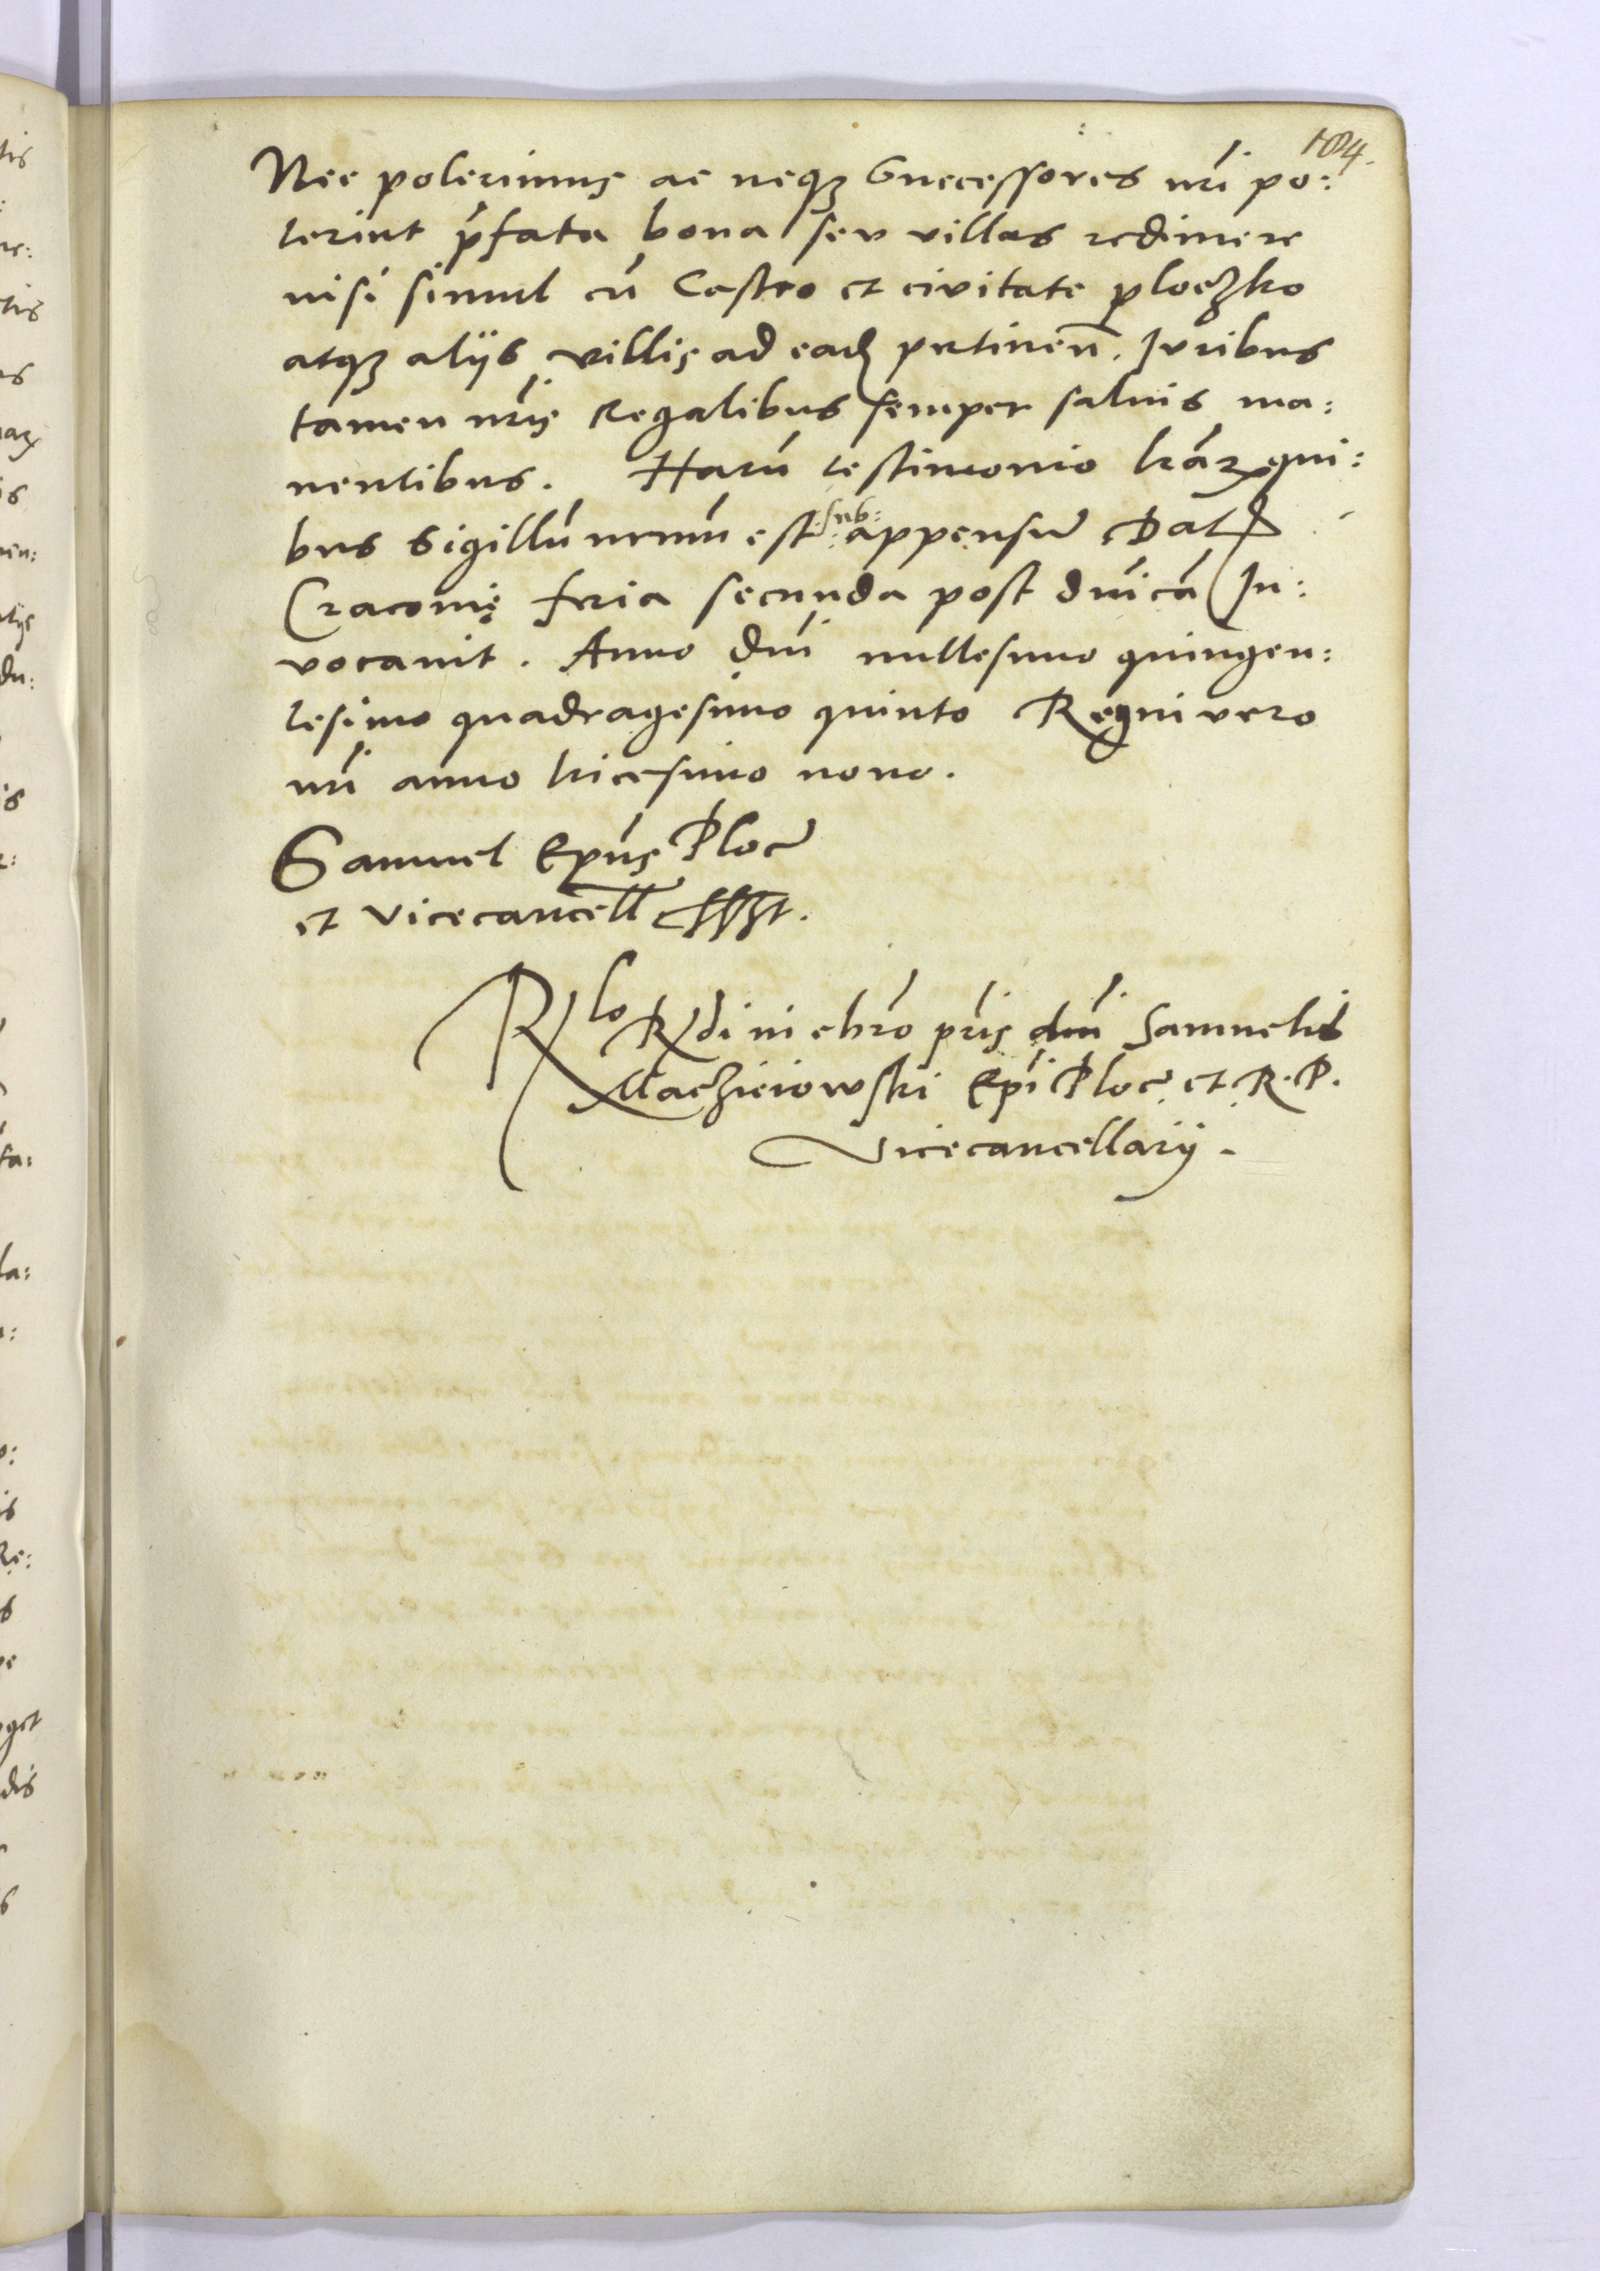 184.
Nec poterimus ac neqȝ Successores nr̃i po:
terint p̃fata bona seu villas redimere
nisi simul cũ Castro et civitate ploczko
atqȝ alijs villis ad eadẽ prtinen̄. Juribus
tamen nr̃is Regalibus semper saluis ma:
nentibus. Harũ testimonio l̃raꝝ qui:
bus Sigillũ nrmũ est :sub: appensũ Dat
Cracouię feria secunda post dñicã In:
vocauit. Anno Dñi millesimo quingen:
tesimo quadragesimo quinto Regni vero
nr̃i anno tricesimo nono.
Samuel Ep̃us Ploc̃
et vicecancell̃ sſſt.
Rlo Rdi in chr̃o pr̃is dñi Samuelis
Maczieiowski Ep̃i Ploc̃ et R. P.
Vicecancellarij.